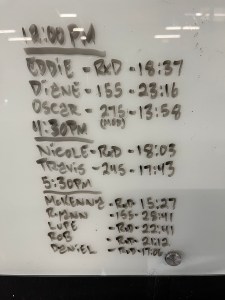 12:00 PM
EDDIE - RXD - 18:37
DIANE - 155 - 23:16
OSCAR - 275 - 13:58
(MOD)
4:30PM
NICOLE - RXD - 18:03
TRAVIS - 245 - 17:43
5:30PM
MCKENNA - RXD - 15:27
RYANN - 155 - 23:41
LUPE - RXD - 22:41
ROB - RXD - 21:12
DANIEL - RXD - 17:06